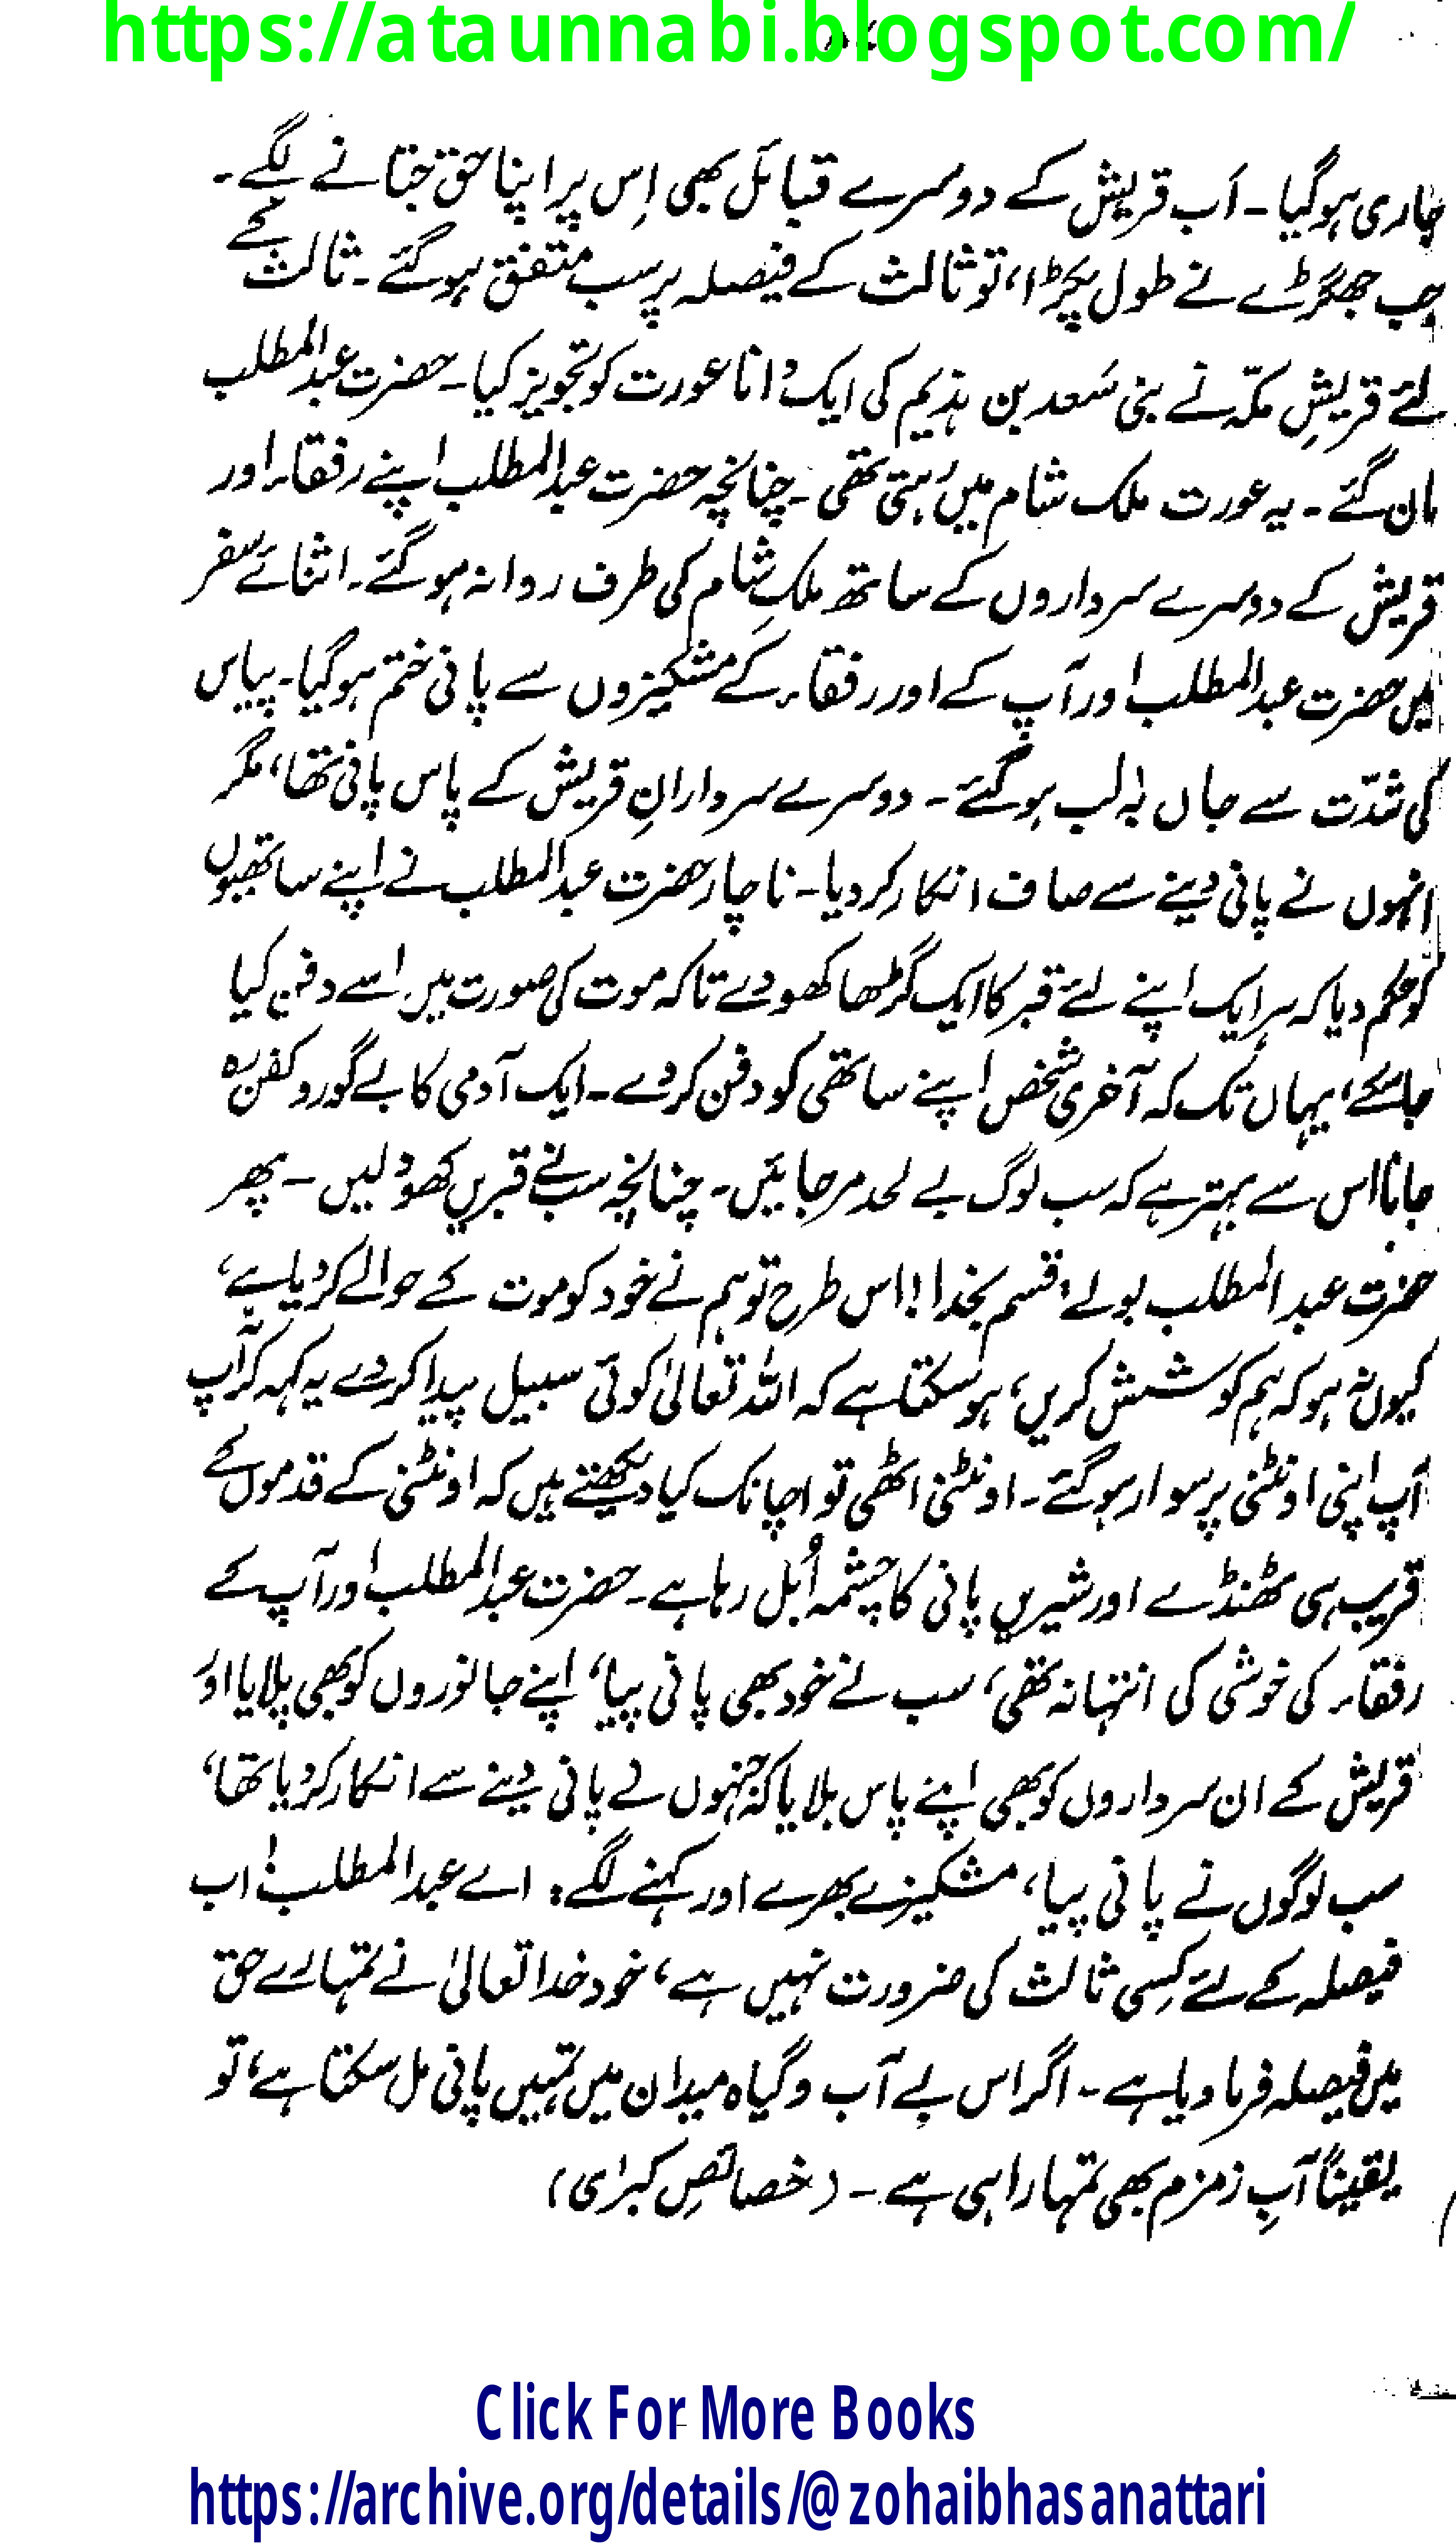 https://ataunnabi.blogspot.com/
جاری ہوگیا۔ اَب قریش کے دوسرے قبائل بھی اِس پر اپنا حق جتانے لگے۔
جب جھگڑے نے طول پکڑا، تو ثالث کے فیصلہ پر سب متفق ہو گئے۔ ثالث کے
لئے قریشِ مکّہ نے بنی سَعد بن ہذیم کی ایک دانا عورت کو تجویز کیا۔ حضرت عبدالمطلب
مان گئے۔ یہ عورت ملک شام میں رہتی تھی۔ چنانچہ حضرت عبدالمطلب اپنے رفقاء اور
قریش کے دوسرے سرداروں کے ساتھ ملکِ شام کی طرف روانہ ہو گئے۔ اثنائے سفر
میں حضرت عبدالمطلب اور آپ کے اور رفقاء کے مشکیزوں سے پانی ختم ہوگیا۔ پیاس
کی شدّت سے جاں بہ لب ہو گئے۔ دوسرے سردارانِ قریش کے پاس پانی تھا، مگر
انہوں نے پانی دینے سے صاف انکار کر دیا۔ ناچار حضرت عبدالمطلب نے اپنے ساتھیوں
کو حکم دیا کہ ہر ایک اپنے لئے قبر کا ایک گڑھا کھو دے تاکہ موت کی صورت میں اسے دفن کیا
جا سکے، یہاں تک کہ آخری شخص اپنے ساتھی کو دفن کر دے۔ ایک آدمی کا بے گور و کفن رہ
جانا اس سے بہتر ہے کہ سب لوگ بے لحد مر جائیں۔ چنانچہ سب نے قبریں کھود لیں۔ پھر
حضرت عبدالمطلب بولے، قسم بخدا! اس طرح تو ہم نے خود کو موت کے حوالے کر دیا ہے،
کیوں نہ ہو کہ ہم کوشش کریں، ہو سکتا ہے کہ اللہ تعالیٰ کوئی سبیل پیدا کر دے یہ کہہ کر آپ
آپ اپنی اونٹنی پر سوار ہو گئے۔ اونٹنی اٹھی تو اچانک کیا دیکھتے ہیں کہ اونٹنی کے قدموں کے
قریب ہی ٹھنڈے اور شیریں پانی کا چشمہ اُبل رہا ہے۔ حضرت عبدالمطلب اور آپ کے
رفقاء کی خوشی کی انتہا نہ تھی، سب نے خود بھی پانی پیا، اپنے جانوروں کو بھی پلایا اور
قریش کے ان سرداروں کو بھی اپنے پاس بلایا کہ جنہوں نے پانی دینے سے انکار کر دیا تھا،
سب لوگوں نے پانی پیا، مشکیزے بھرے اور کہنے لگے: اے عبدالمطلب! اب
فیصلہ کے لئے کِسی ثالث کی ضرورت نہیں ہے، خود خدا تعالیٰ نے تمہارے حق
میں فیصلہ فرما دیا ہے۔ اگر اس بے آب و گیاہ میدان میں تمہیں پانی مل سکتا ہے، تو
یقیناً آبِ زمزم بھی تمہارا ہی ہے۔ (خصائصِ کبرٰی)
Click For More Books
https://archive.org/details/@zohaibhasanattari